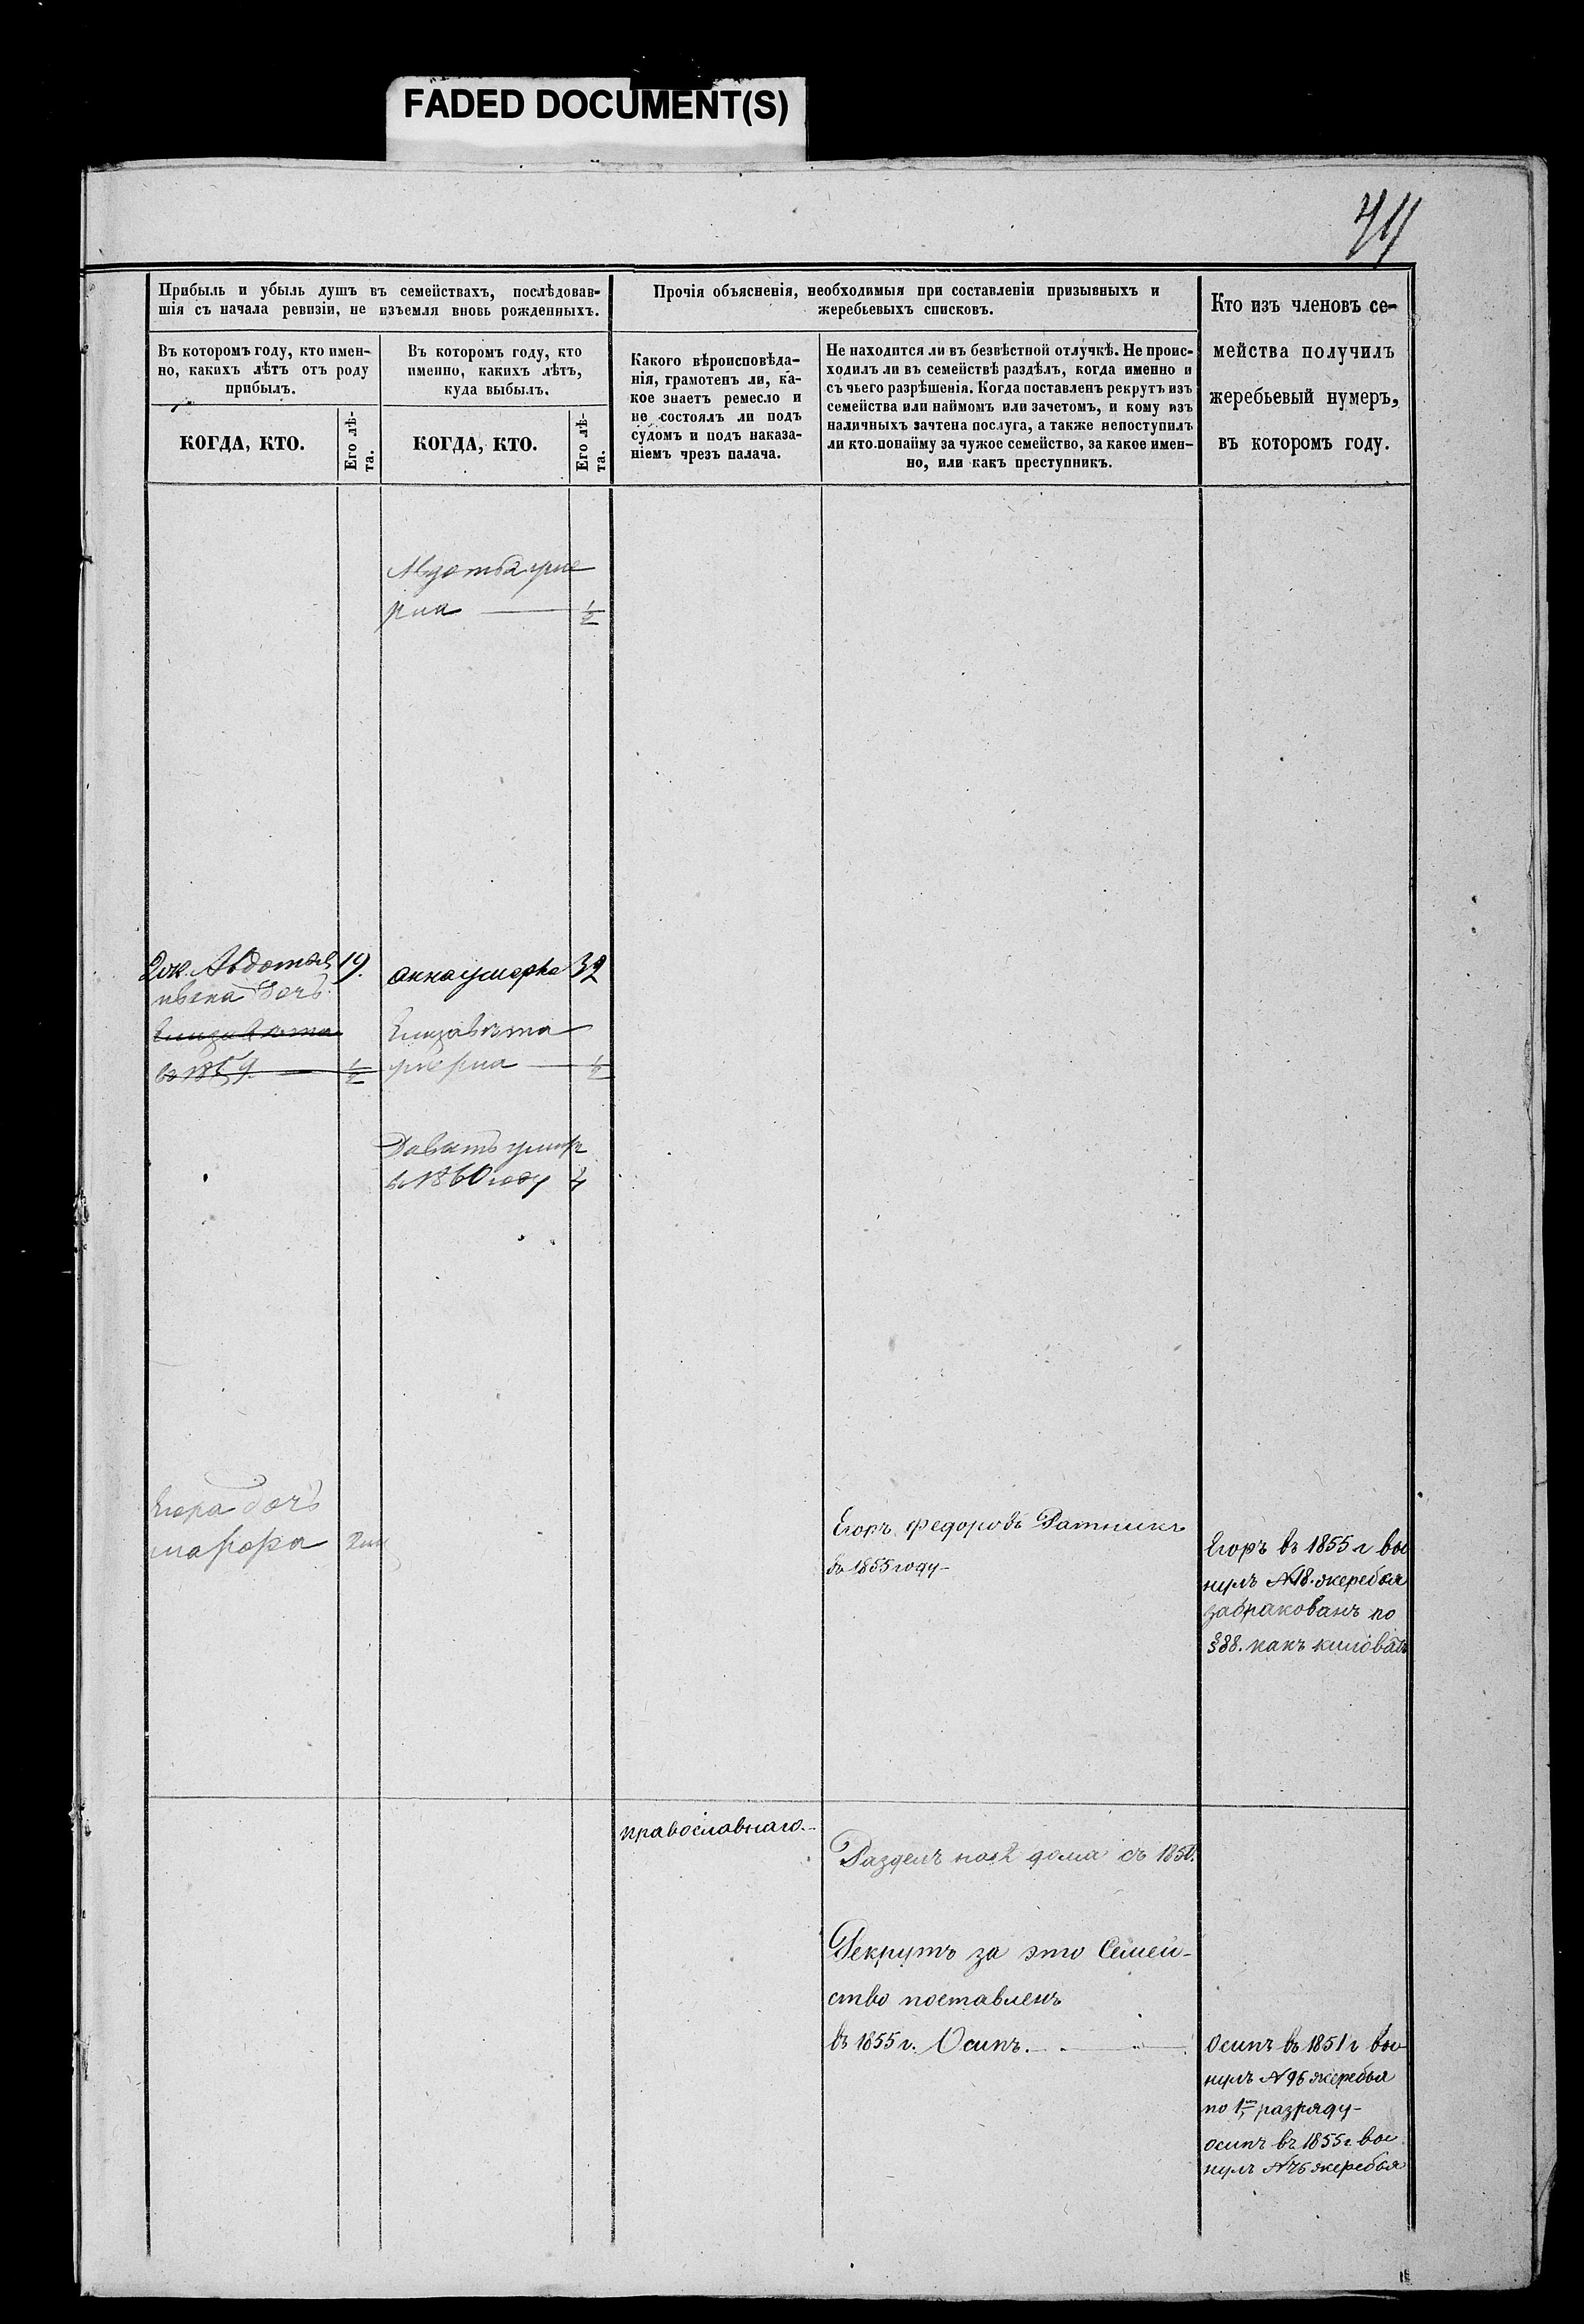 FADED DOCUMENT(S)
Прибыль и убыль душъ въ семействахъ, послѣдовав-
шія съ начала ревизіи, не изъемля вновь рожденныхъ.
Въ которомъ году, кто имен-
но, какихъ лѣтъ отъ роду
прибылъ.
Въ которомъ году, кто
именно, какихъ лѣтъ,
куда выбылъ.
КОГДА, КТО.
Его лѣ-
та.
КОГДА, КТО.
Его лѣ-
та.
Прочія объясненія, необходимыя при составленіи призывныхъ и
жеребьевыхъ списковъ.
Какого вѣроисповѣда-
нія, грамотенъ ли, ка-
кое знаетъ ремесло и
не состоялъ ли подъ
судомъ и подъ наказа-
ніемъ чрезъ палача.
Не находится ли въ безвѣстной отлучкѣ. Не проис-
ходилъ ли въ семействѣ раздѣлъ, когда именно и
съ чьего разрѣшенія. Когда поставленъ рекрутъ изъ
семейства или наймомъ или зачетомъ, и кому изъ
наличныхъ зачтена послуга, а также непоступилъ
ли кто понайму за чужое семейство, за какое имен-
но, или какъ преступникъ.
Кто изъ членовъ се-
мейства получилъ
жеребьевый нумеръ,
въ которомъ году.
1/2
Авдотья 19.
дочь
Елизавета
въ 1859 1/2
Анна умерла 32
Елизавета
1/2
умер
въ 1860 году
Егора дочь
Егоръ Федоровъ Ратникъ
въ 1855 году-
Егоръ въ 1855 г вы
нулъ №18. жеребья
забракованъ по
§88. какъ киловатъ
православнаго.-
Разделъ на 2 дома съ 1850.
Рекрутъ за это Семей-
ство поставленъ
въ 1855 г. Осипъ.
Осипъ въ 1851 г вы
нулъ №96 жеребья
по 1му разряду-
осипъ въ 1855 г вы
нулъ жеребья